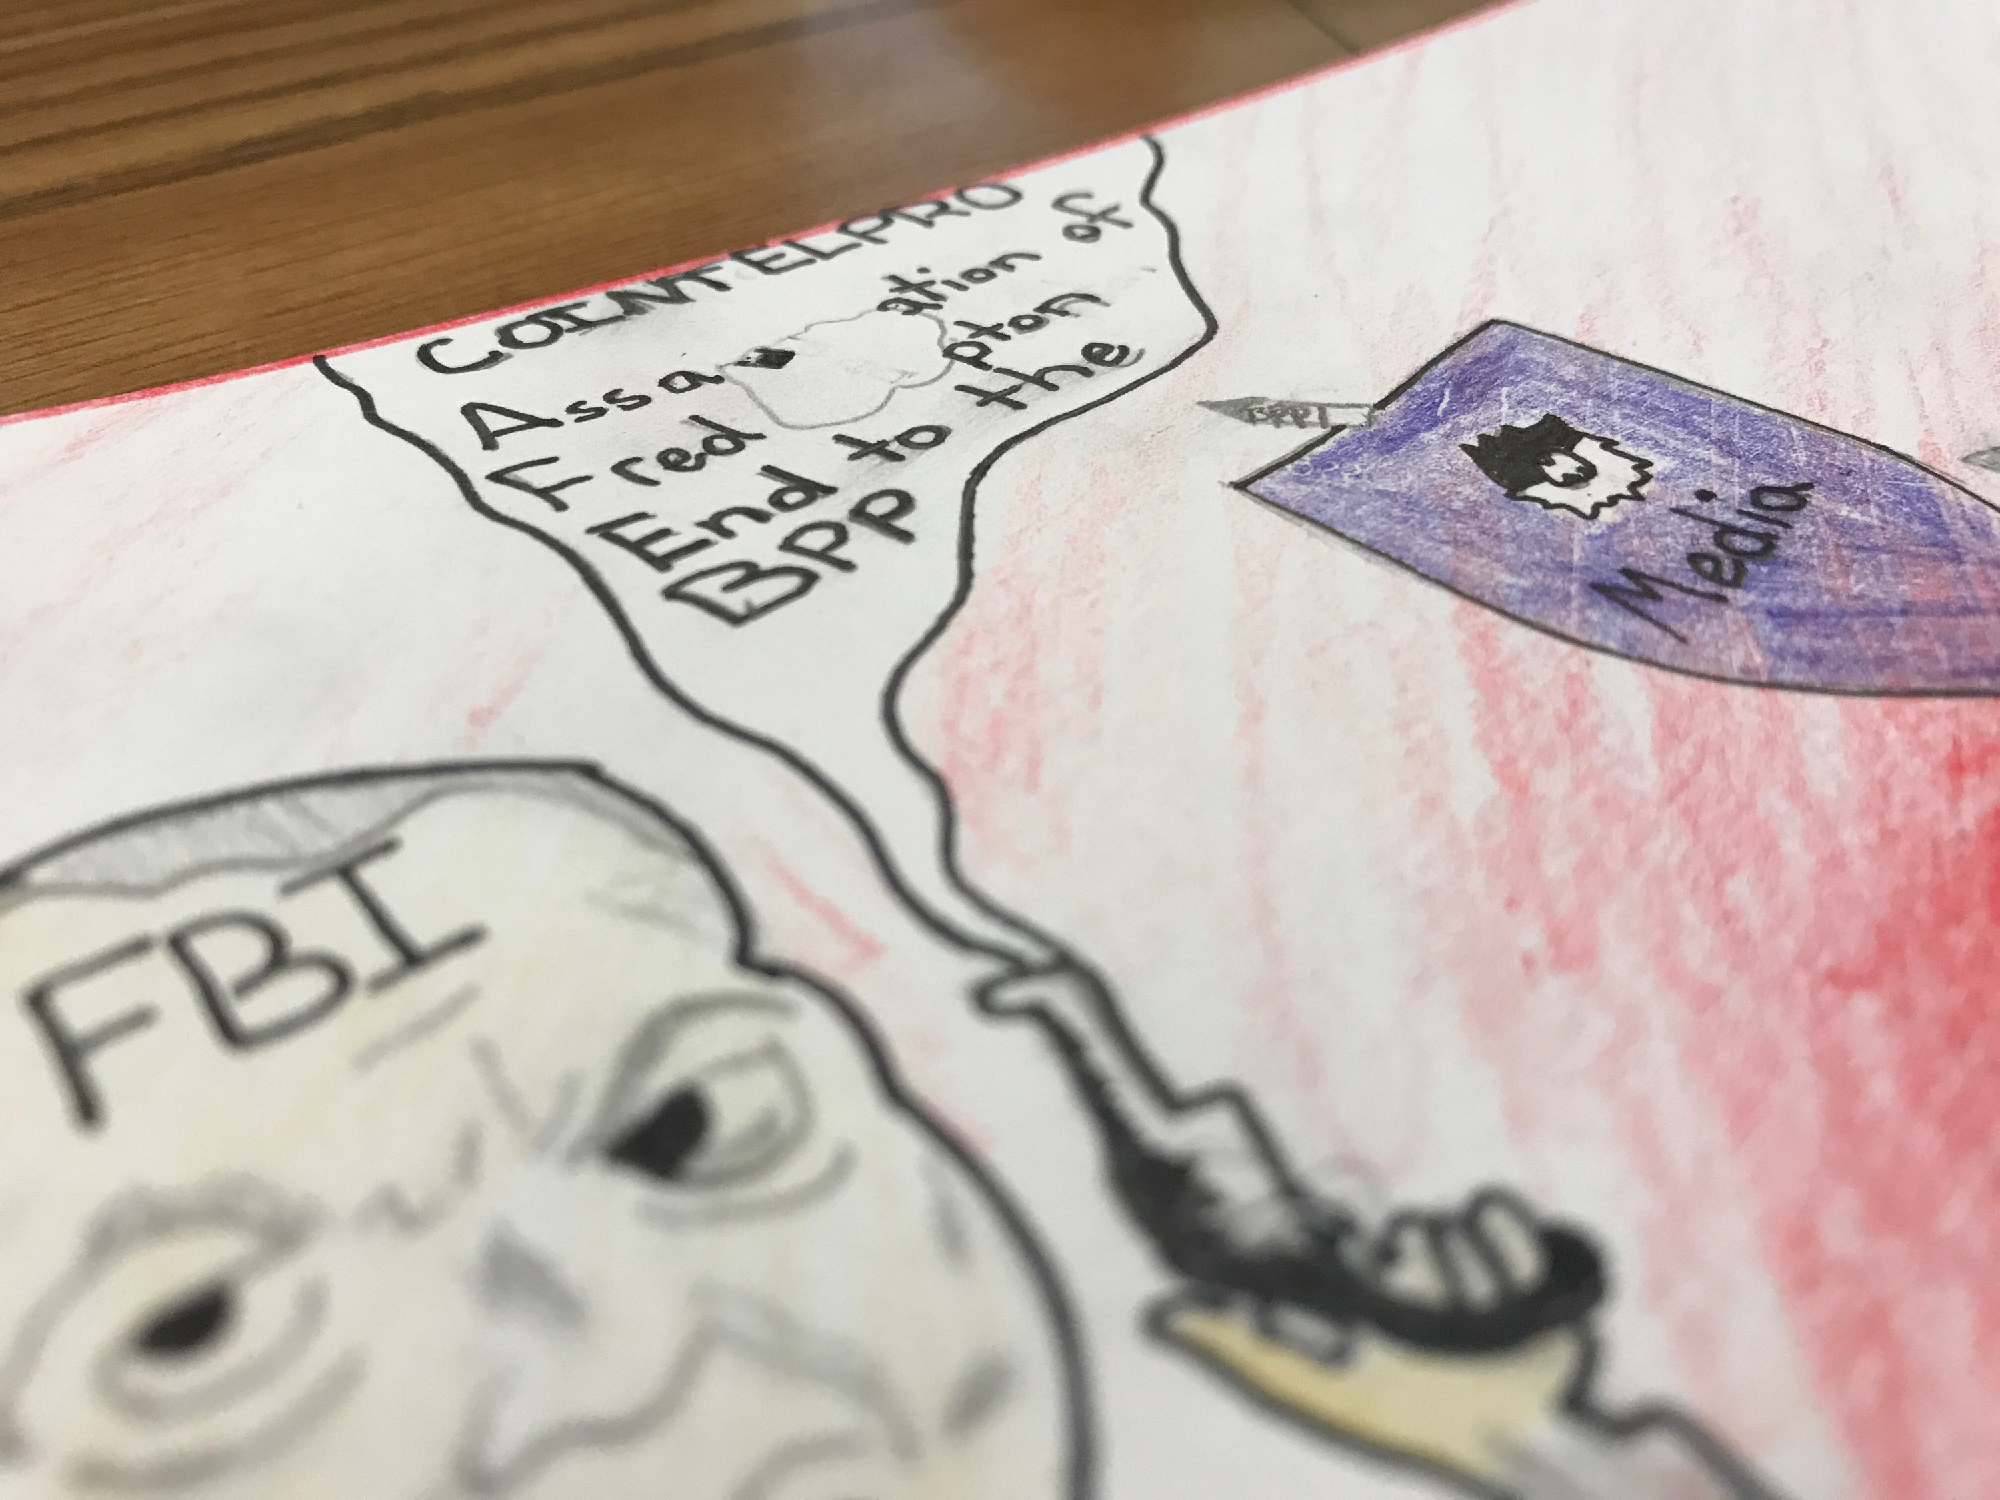 COINTELPRO
Assa ation of
Fred pton
End to the
BPP
Media
FBI